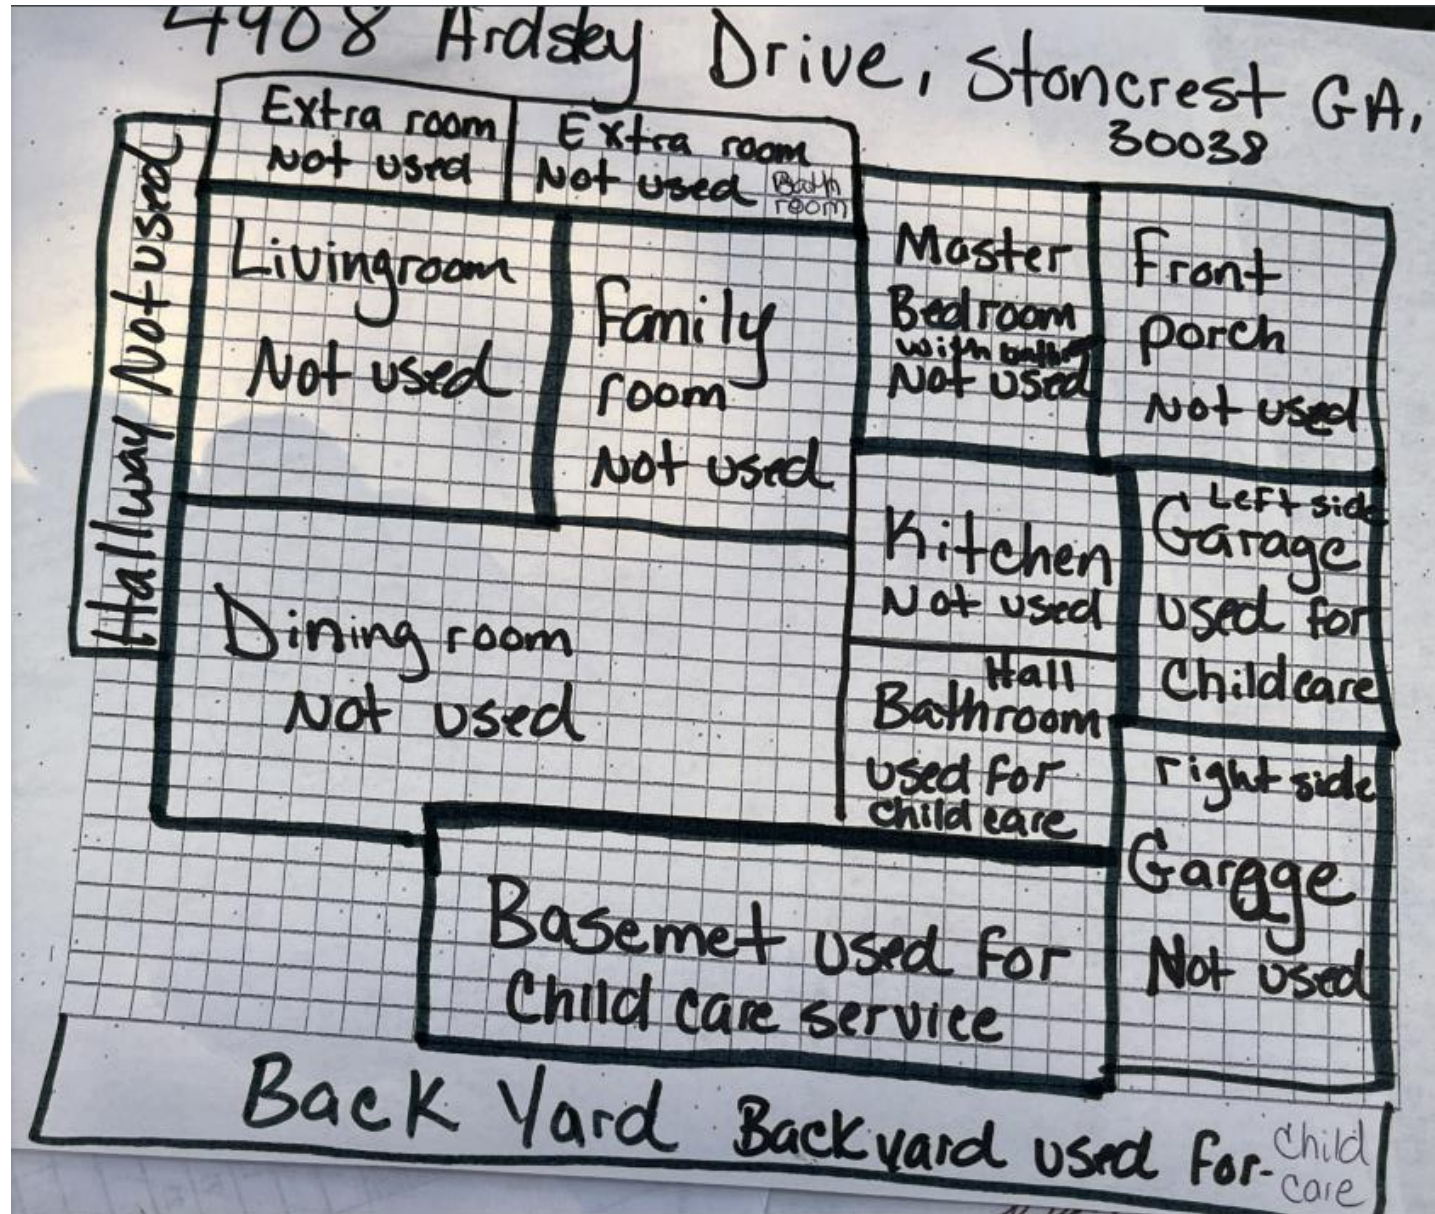 4908 Ardsley Drive, Stoncrest GA,
30038
Extra room
Not used
Extra room
Not used
Bath
room
Hallway Not used
Livingroom
Not used
Family
room
Not used
Master
Bedroom
with
Not used
Front
porch
Not used
Kitchen
Not used
Left side
Garage
used for
Childcare
Dining room
Not used
Hall
Bathroom
used for
Child care
right side
Garage
Not used
Basemet used for
Child care service
Back Yard Backyard used for-
Child
care